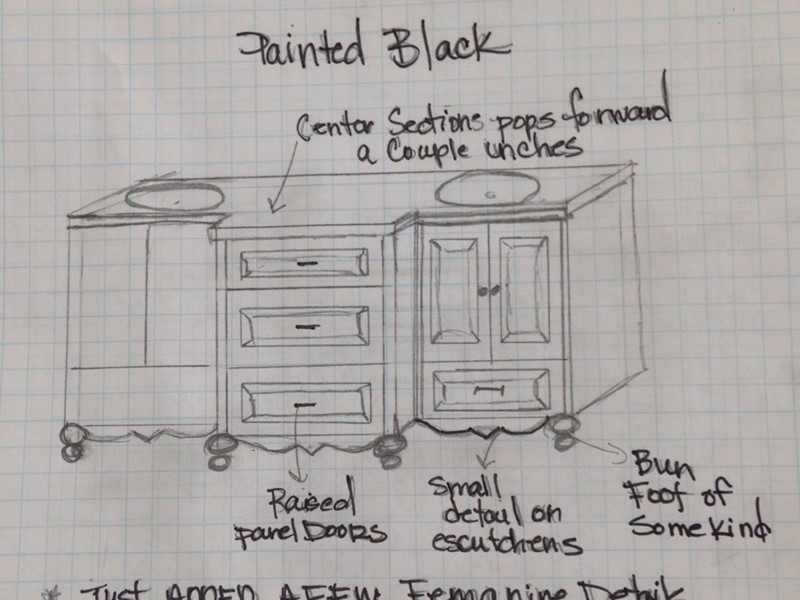 Painted Black
Center Sections pops forward
a Couple inches
Raised
panel Doors
Small
detail on
escutchens
Bun
Foot of
Some kind
* Just ADDED A FEW Femanine Detail